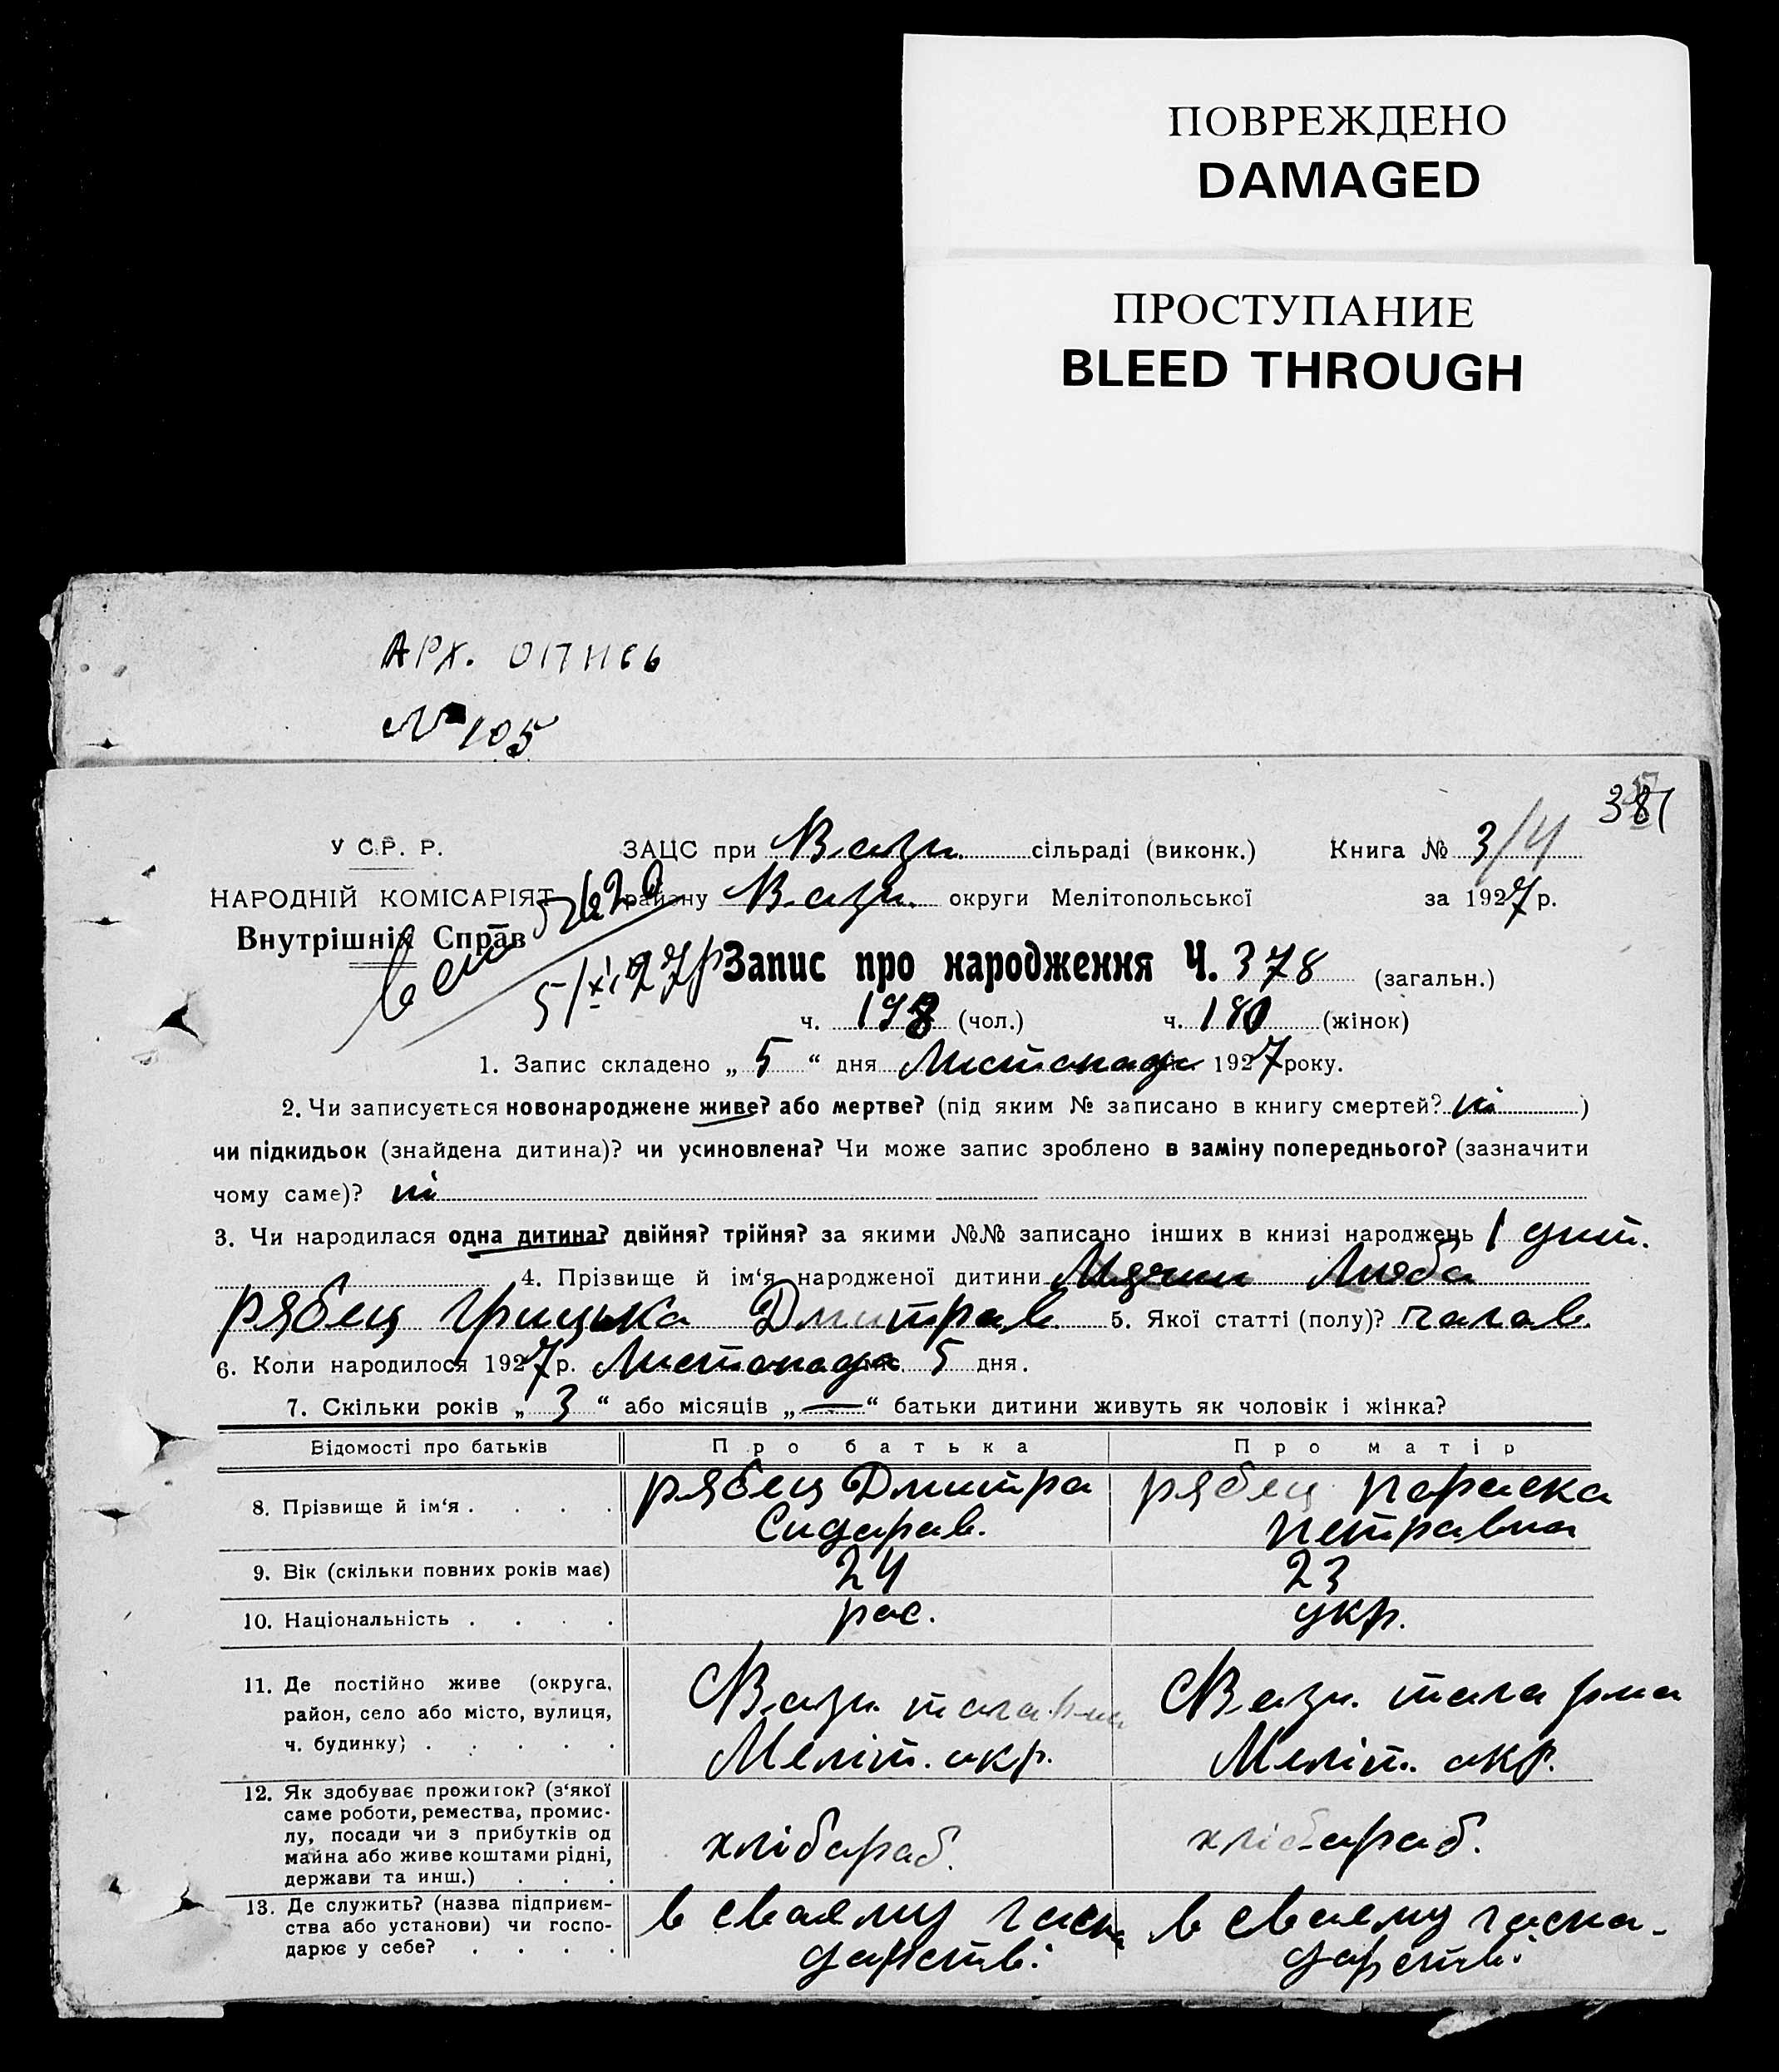 ПОВРЕЖДЕНО
DAMAGED
ПРОСТУПАНИЕ
BLEED THROUGH
АРХ. ОПИСЬ
№ 105
У С.Р. Р.
ЗАЦС при сільраді (виконк.) Книга № 3/4
НАРОДНІЙ КОМІСАРІЯТ району округи Мелітопольської за 1927 р.
Внутрішніх Справ
5/XI 27 р
Запис про народження Ч. 378 (загальн.)
ч. 198 (чол.) ч. 180 (жінок)
1. Запис складено „ 5 “ дня Листопада 1927 року.
2. Чи записується новонароджене живе? або мертве? (під яким № записано в книгу смертей? ні )
чи підкидьок (знайдена дитина)? чи усиновлена? Чи може запис зроблено в заміну попереднього? (зазначити
чому саме)? ні
3. Чи народилася одна дитина? двійня? трійня? за якими №№ записано інших в книзі народжень 1 дит.
4. Прізвище й ім‘я народженої дитини Люба
рябец Грицька Дмитрав. 5. Якої статті (полу)? чалав.
6. Коли народилося 1927 р. Листопада міс. 5 дня.
7. Скільки років „ 3 “ або місяців „ — “ батьки дитини живуть як чоловік і жінка?
Відомості про батьків Про батька Про матір
8. Прізвище й ім‘я . . . . рябец Дмитра Сидарав. рябец Параска Петравна
9. Вік (скільки повних років має) 24 23
10. Національність . . . . рос. укр.
11. Де постійно живе (округа,
район, село або місто, вулиця,
ч. будинку) . . . . .
Меліт. акр. Меліт. акр.
12. Як здобуває прожиток? (з‘якої
саме роботи, ремества, промис-
лу, посади чи з прибутків од
майна або живе коштами рідні,
держави та инш.) . . .
хлібараб. хлібараб.
13. Де служить? (назва підприєм-
ства або установи) чи госпо-
дарює у себе? . . . .
в сваему гаспа дарстві. в сваему гаспа- дарстві.